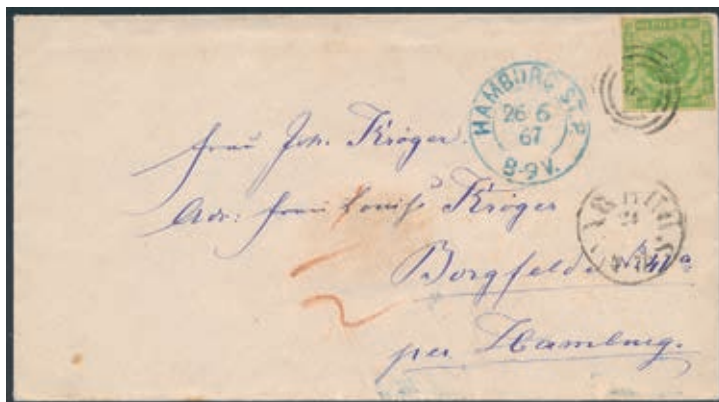 HAMBURG ST.P.
26 6
67
8-9 V.
Frau Joh. Kröger.
Adr: Frau Louise Kröger
Borgfelde
per Hamburg.